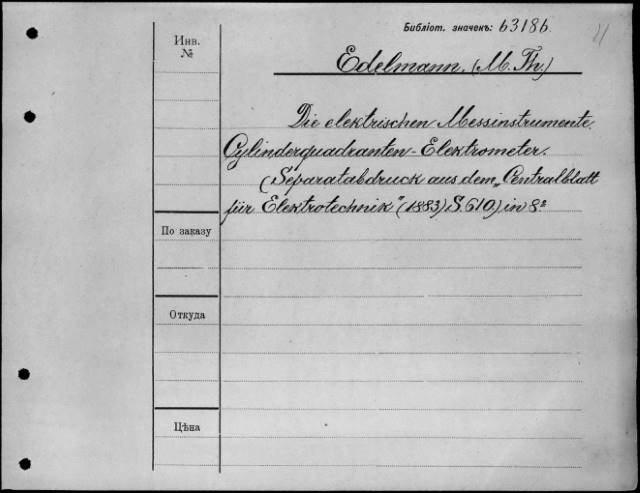 Библіот. значекъ: 63186.
Инв.
№
Edelmann. (M. Th.)
Die elektrischen Messinstrumente.
Cylinderquadranten-Elektrometer.
(Separatabdruck aus dem „Centralblatt
für Elektrotechnik" (1883) S. 610) in 8º
По заказу
Откуда
Цѣна